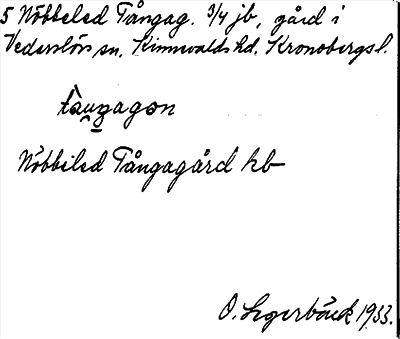 5 Nöbbeled Tångag. 3/4 jb, gård i
Vederslövs sn. Kinnevalds hd. Kronobergs l.
tåŋagon
Nöbbeled Tångagård kb
O. Segerbäck 1933.